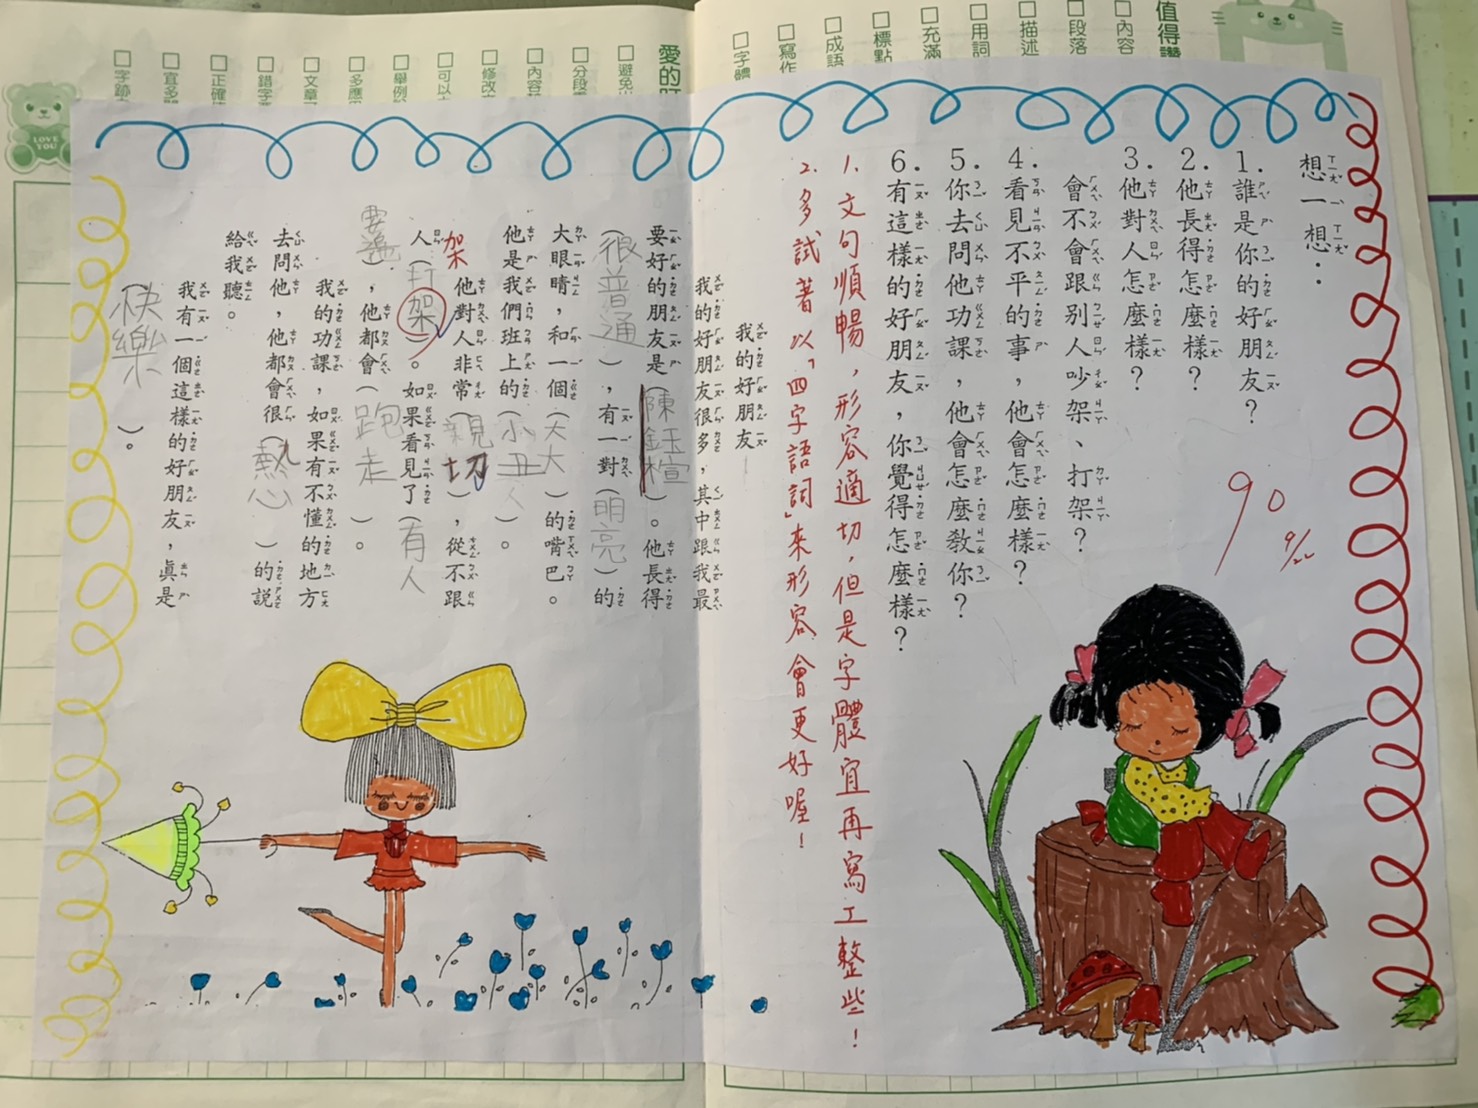 值得讚
□內容
□段落
□描述
□用詞
□充滿
□標點
□成語
□寫作
□字體
愛的叮
□避免
□分段
□內容
□修改
□可以
□舉例
□多應
□文章
□錯字
□正確
□宜多
□字跡
LOVE YOU
想一想：
1.誰是你的好朋友？
2.他長得怎麼樣？
3.他對人怎麼樣？
會不會跟別人吵架、打架？
4.看見不平的事，他會怎麼樣？
5.你去問他功課，他會怎麼教你？
6.有這樣的好朋友，你覺得怎麼樣？
90 9/22
1. 文句順暢，形容適切，但是字體宜再寫工整些！
2. 多試著以「四字語詞」來形容會更好喔！
我的好朋友
我的好朋友很多，其中跟我最
要好的朋友是（陳鈺楦）。他長得
（很普通），有一對（明亮）的
大眼睛，和一個（大大）的嘴巴。
他是我們班上的（小丑人）。
他對人非常（親切），從不跟
架
人（打架）。如果看見了（有人
要逃），他都會（跑走）。
我的功課，如果有不懂的地方
去問他，他都會很（熱心）的說
給我聽。
我有一個這樣的好朋友，真是
（快樂）。